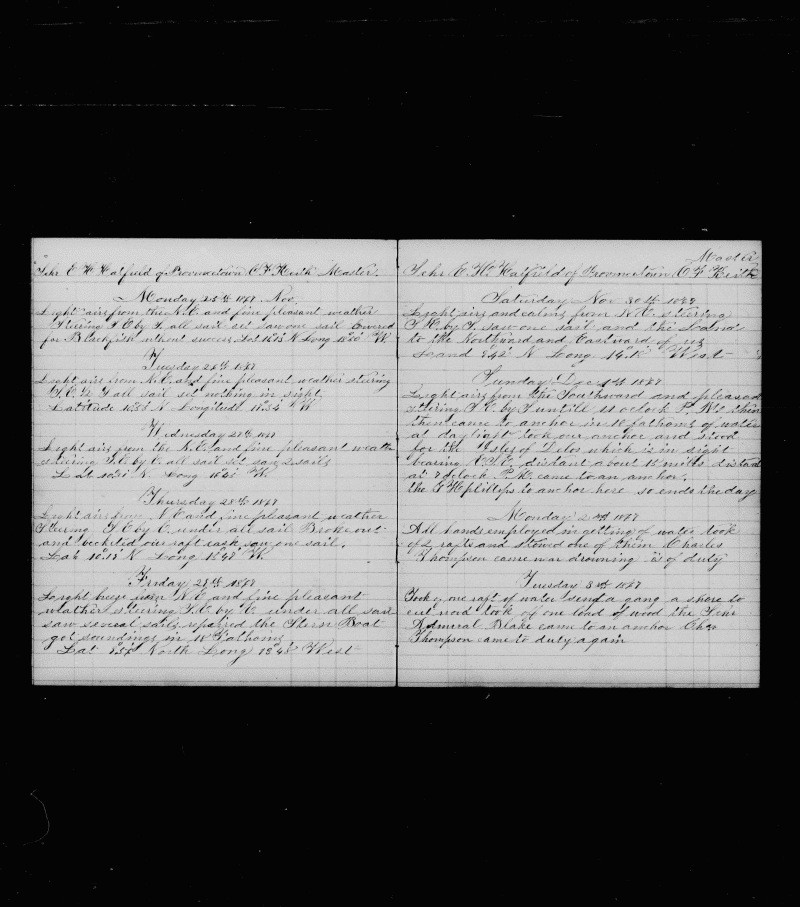 Schr E H Hatfield of Provincetown C F Keith Master.
Monday 25th 1877 Nov.
Light airs from the N.E. and fine pleasant weather
Stering S E by S. all sail set saw one sail Lowered
for Blackfish without success Lat N Long W
Tuesday 26th 1877
Light airs from N.E. and fine pleasant weather steering
S.E. all sail set nothing in sight
Latitude N Longitude W
Wednesday 27th 1877
Light airs from the N.E. and fine pleasant weather
steering S.E. by E. all sail set saw 2 sails
Lat N Long W.
Thursday 28th 1877
Light airs from N E and fine pleasant weather
Stering S E by E. under all sail Broke out
and our raft cask saw one sail.
Lat N Long W
Friday 29th 1877
Light breeze from N E and fine pleasant
weather stering S.E. by E. under all sail
saw several sails repaired the Stern Boat
got soundings in Fathoms
Lat North Long West
Master
Schr E. H. Hatfield of Provincetown C F Keith
Saturday Nov 30th 1877
Light airs and calms from N.E. stering
S.E. by S. saw one sail and the
to the Northward and Eastward of us
N Long West
Sunday Dec 1st 1877
Light airs from the Southward and pleasant
stering S.E. by S untill 11 oclock P.M.
then came to anchor in 18 fathoms of water
at daylight took our anchor and stood
for the Isles of Delos which is in sight
bearing distant about 15 miles distant
at oclock P.M. came to an anchor.
the E H phillips to anchor here so ends the day
Monday 2nd 1877
All hands employed in getting of water took
of 2 rafts and stowed one of them Charles
Thompson came is of duty
Tuesday 3rd 1877
Took of one raft of water send a gang a shore to
cut wood took of one load of wood the Schr
Admiral Blake came to an anchor Chas
Thompson came to duty again